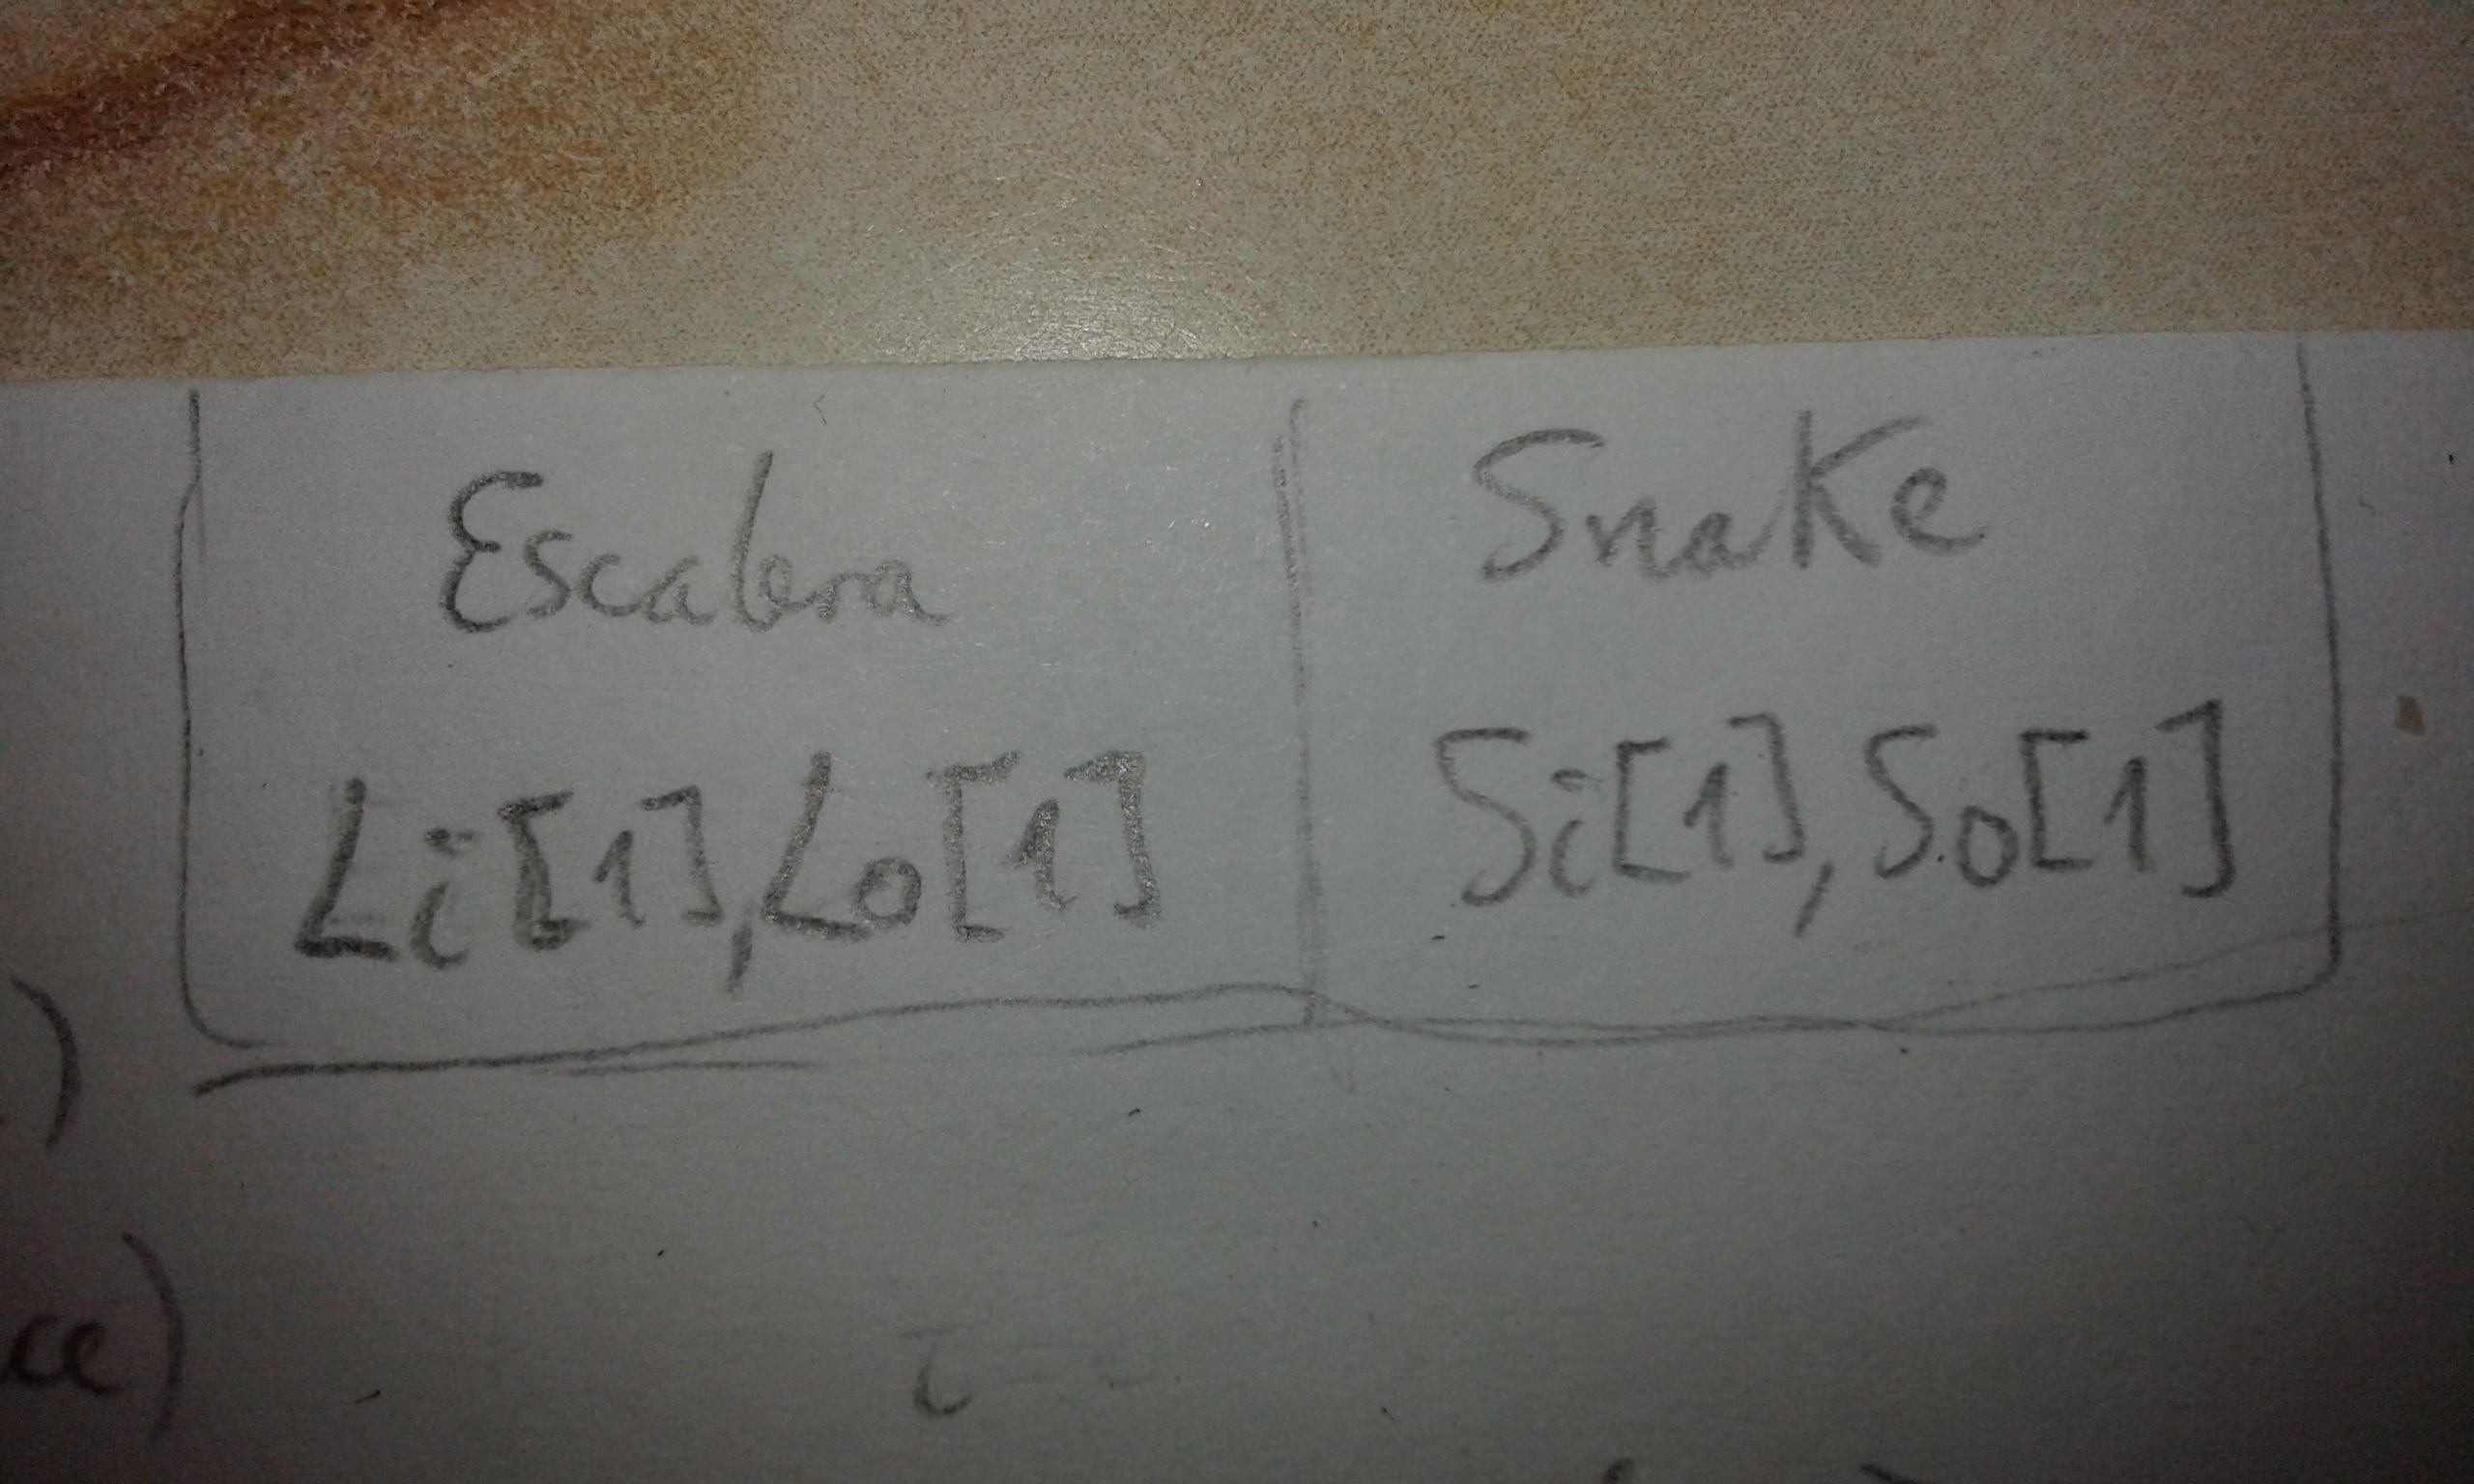 Escalera Snake
Li[1],Lo[1] Si[1],So[1]